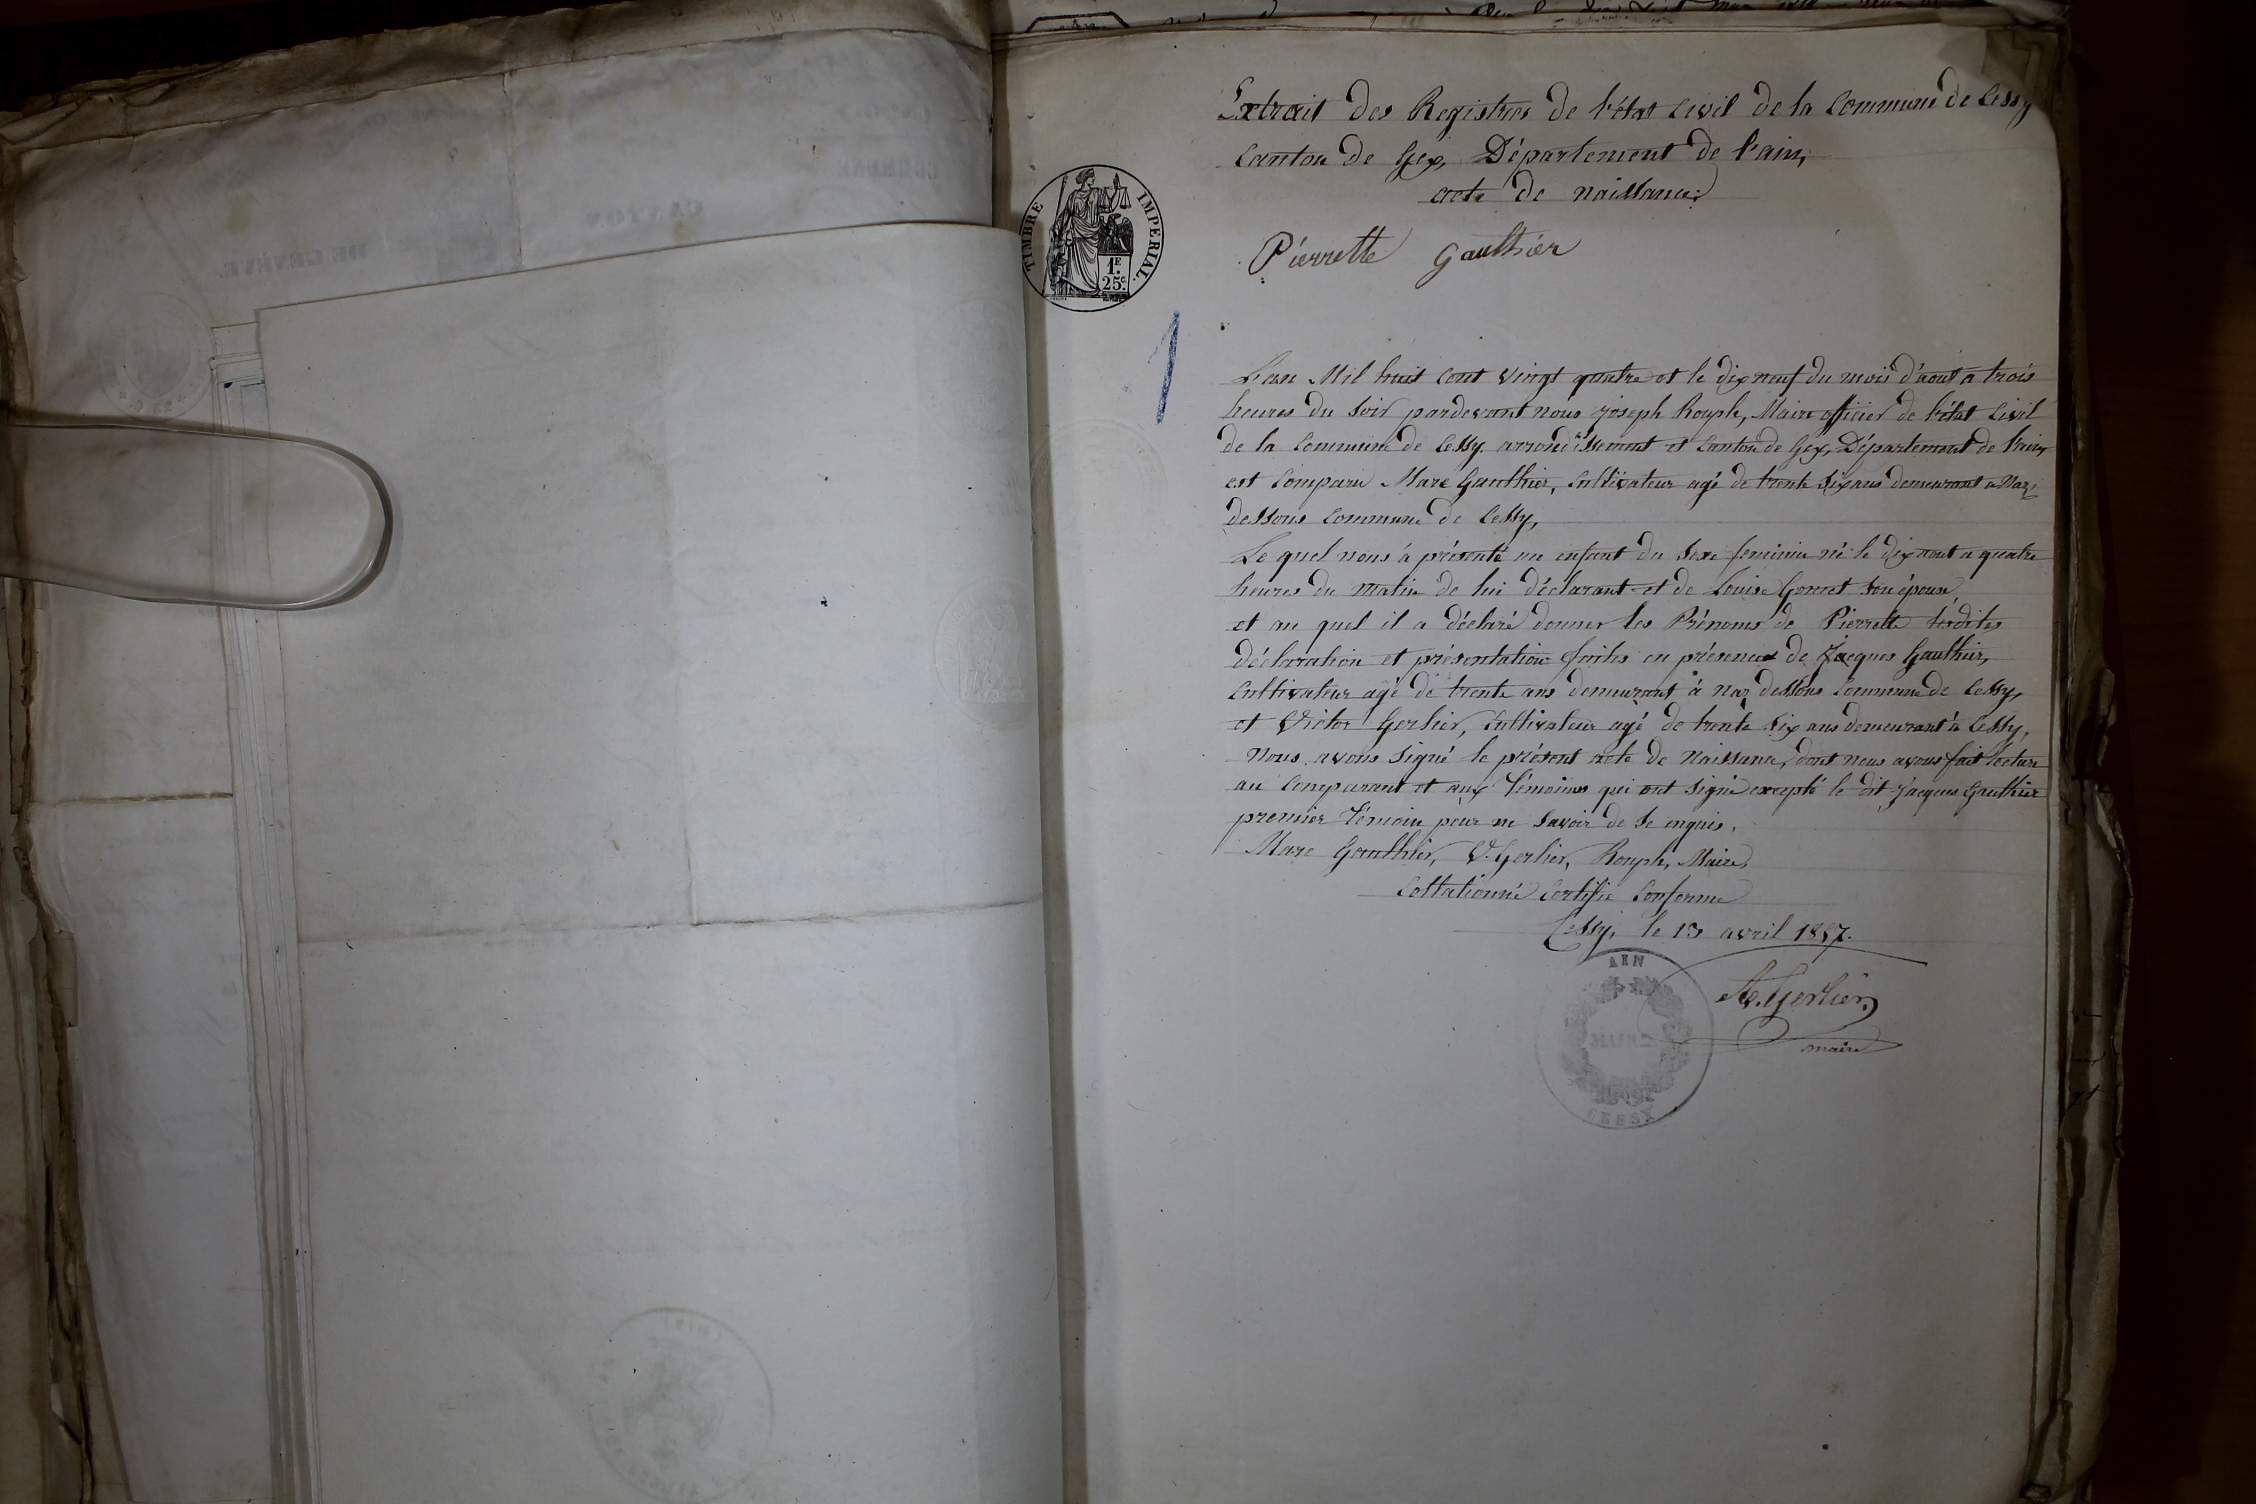 Extrait des Registres de l'état civil de la Commune de Cessy
Canton de Gex, Département de l'ain,
acte de naissance.
Pierrette Gauthier
TIMBRE IMPERIAL
1F
25c.
1
L'an Mil huit cent vingt quatre et le dix neuf du mois d'aout a trois
heures du soir pardevant nous joseph Rouph, Maire officier de l'état civil
de la Commune de Cessy arrondissement et Canton de Gex, Département de l'ain,
est Comparu Marc Gauthier, Cultivateur agé de trente six ans demeurant a Naz
dessous Commune de Cessy,
Le quel nous a présenté un enfant du sexe feminin né le dix aout a quatre
heures du matin de lui déclarant et de Louise Gonet son épouse,
et au quel il a déclaré donner les Prénoms de Pierrette lesdites
déclaration et présentation faites en présence de Jacques Gauthier,
Cultivateur agé de trente ans demeurant à naz dessous Commune de Cessy,
et Victor Gerlier, Cultivateur agé de trente six ans demeurant à Cessy,
Nous avons signé le présent acte de Naissance, dont nous avons fait lecture
au Comparant et aux témoins qui ont signé excepté le dit Jacques Gauthier
premier témoin pour ne savoir de ce enquis.
Marc Gauthier, V. Gerlier, Rouph, Maire,
Collationné Certifié Conforme
Cessy, le 13 avril 1857.
AIN
Gerlier
maire
CESSY